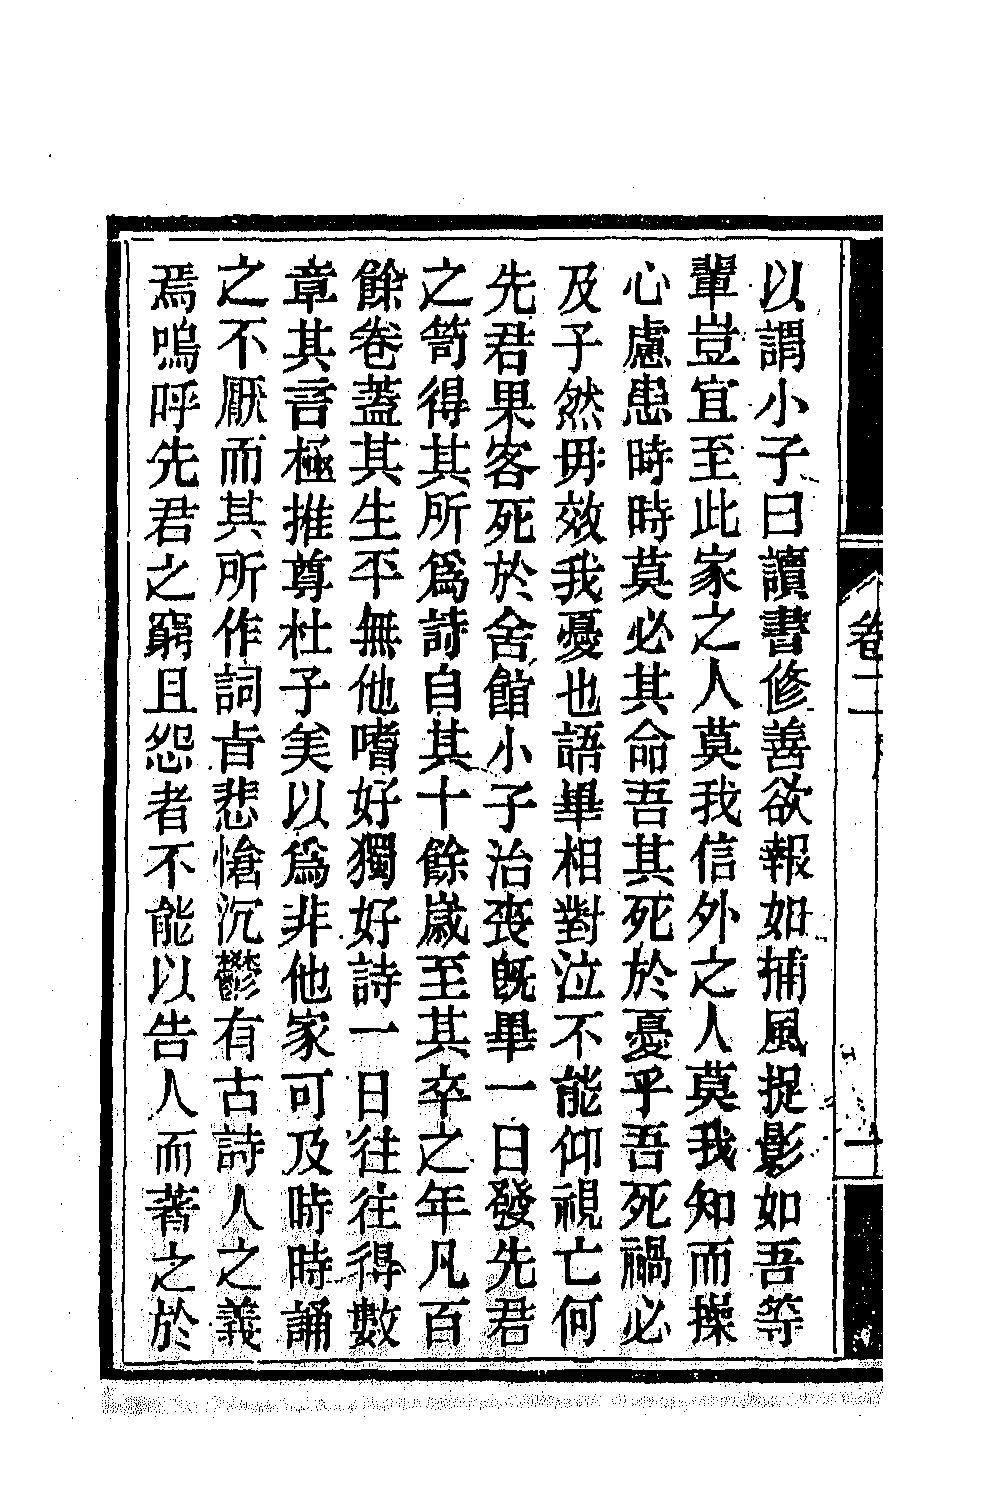 以謂小子曰讀書修善欲報如捕風捉影如吾等
輩豈宜至此家之人莫我信外之人莫我知而操
心慮患時時莫必其命吾其死於憂乎吾死禍必
及子然毋效我憂也語畢相對泣不能仰視亡何
先君果客死於舍館小子治喪旣畢一日發先君
之笥得其所爲詩自其十餘歲至其卒之年凡百
餘卷蓋其生平無他嗜好獨好詩一日往往得數
章其言極推尊杜子美以爲非他家可及時時誦
之不厭而其所作詞旨悲愴沉鬱有古詩人之義
焉嗚呼先君之窮且怨者不能以告人而著之於
卷二
一